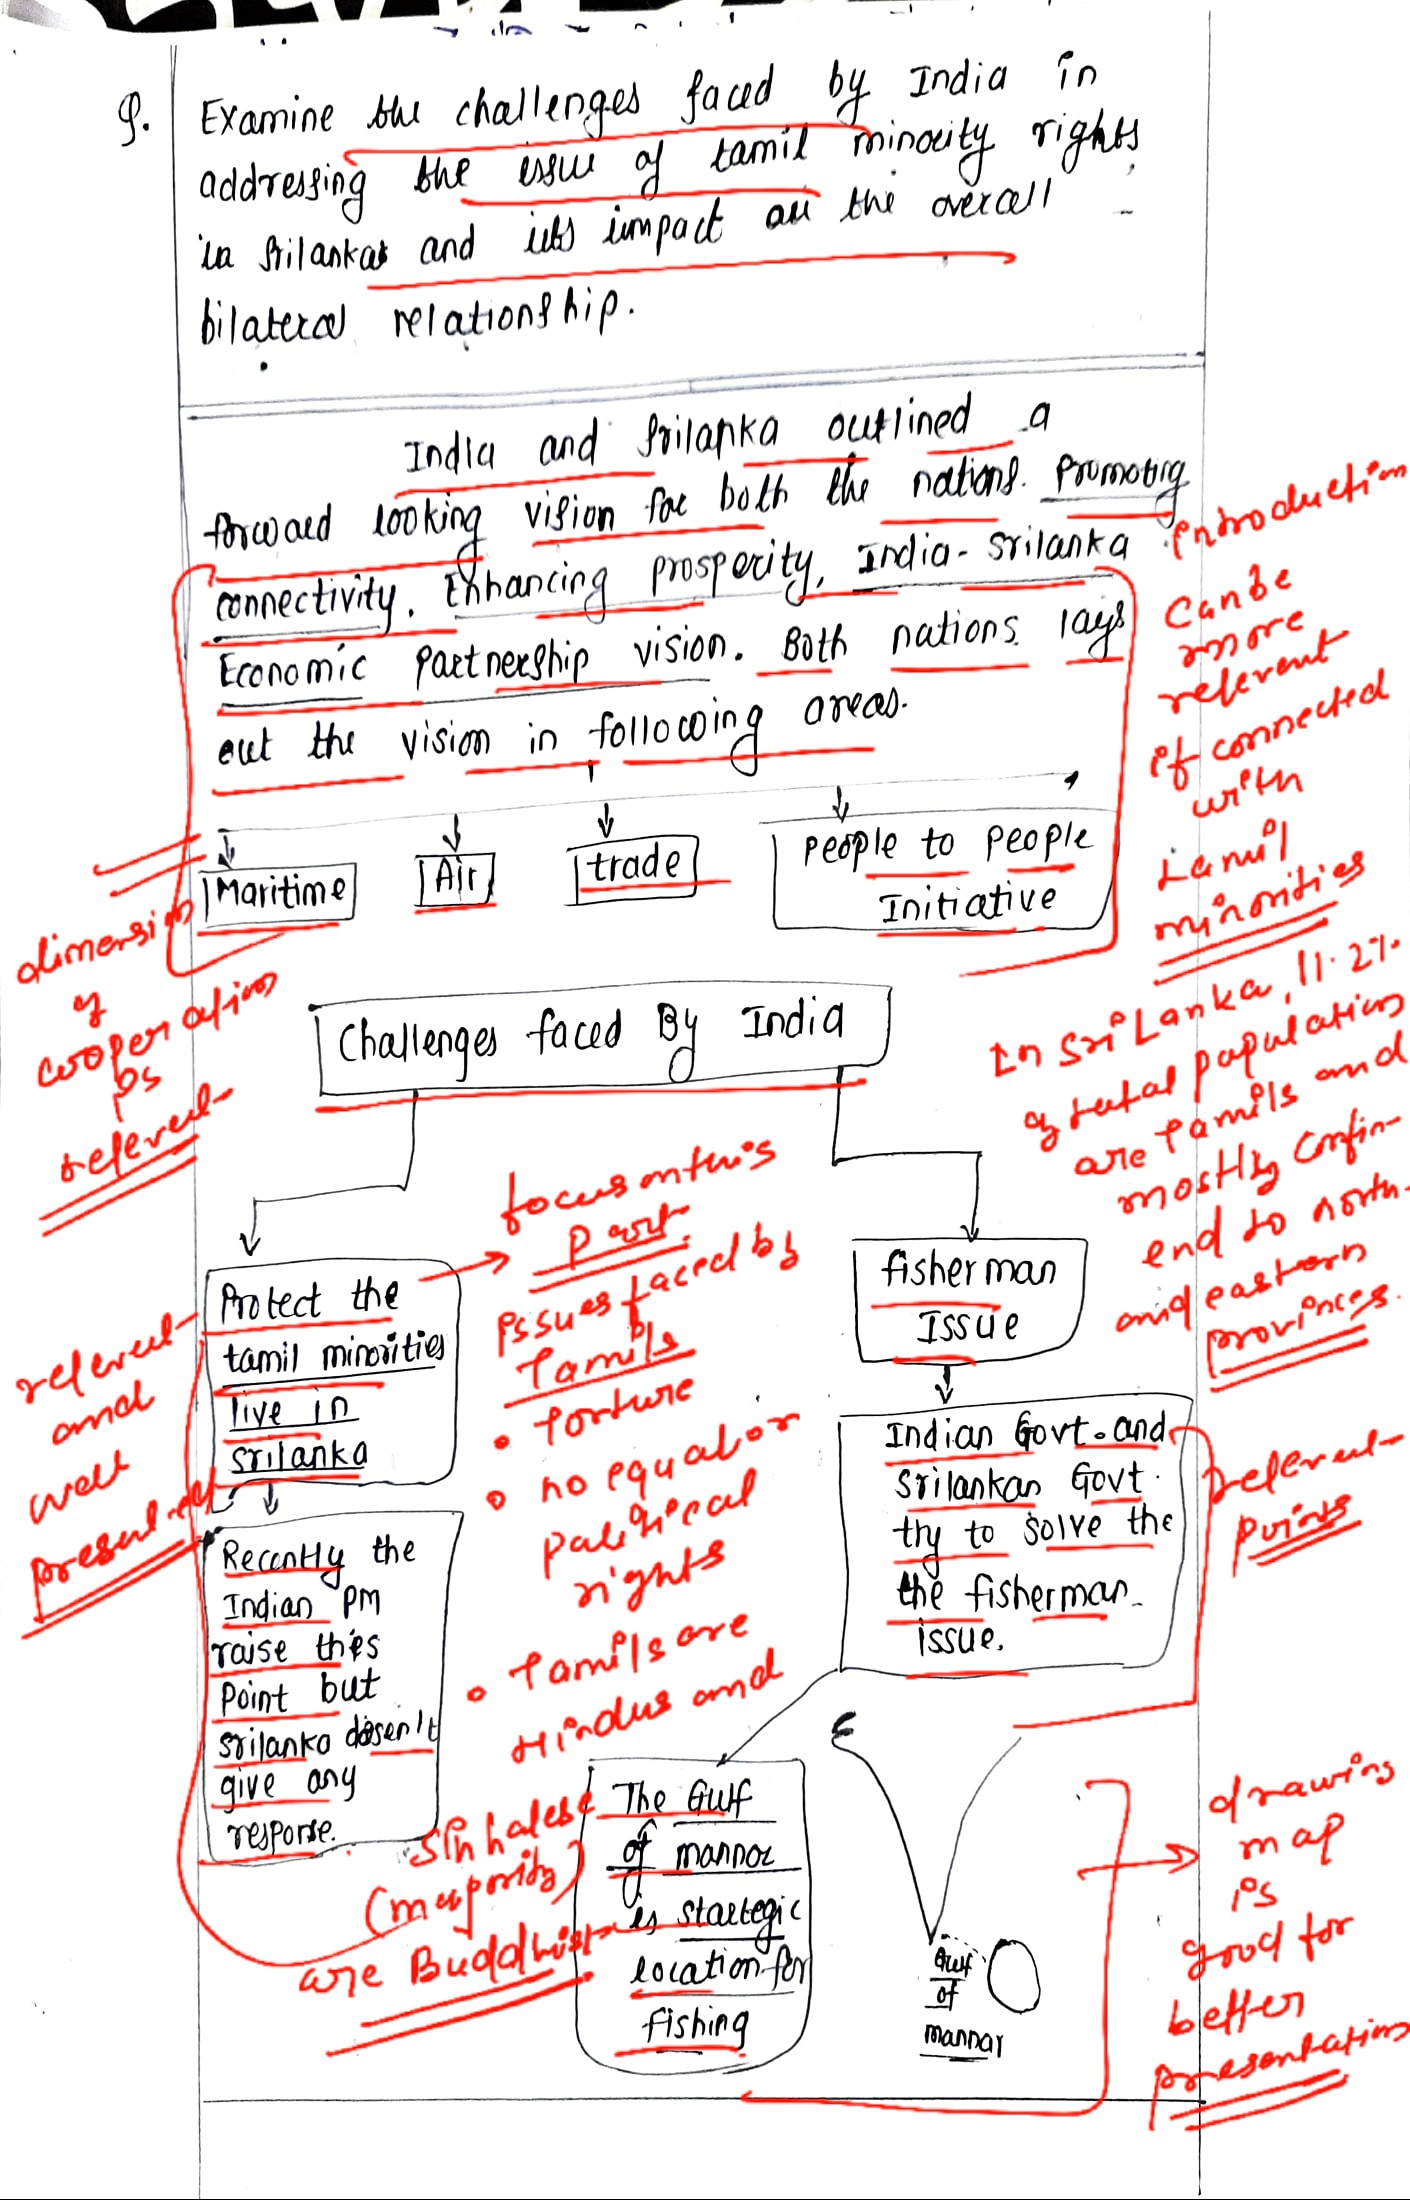 Q.
Examine the challenges faced by India in
addressing the issue of tamil minority rights
in Srilankas and its impact on the overall
bilateral relationship.
India and Srilanka outlined a
forward looking vision for both the nations. Promoting
connectivity, Enhancing prosperity, India-Srilanka
Economic Partnership vision. Both nations lays
out the vision in following areas.
Maritime
Air
trade
People to People
Initiative
Introduction
Can be
more
relevent
if connected
with
Tamil
minorities
dimension
of
cooperation
is
relevent
Challenges faced By India
In Sri Lanka, 11.2%
of total population
are Tamils and
mostly confin-
end to north
and eastern
provinces.
Protect the
tamil minorities
live in
srilanka
focus on this
part
issues faced by
Tamils
• Torture
• no equal or
political
rights
• Tamils are
Hindus and
Sinhalese
(majority)
are Buddhist
relevent
and
well
presented
Recently the
Indian PM
raise this
Point but
srilanka dosen't
give any
response.
fisherman
Issue
Indian Govt. and
srilankan Govt.
try to solve the
the fisherman
issue.
relevent
points
The Gulf
of mannar
is startegic
location for
fishing
Gulf
of
mannar
drawing
map
is
good for
better
presentation